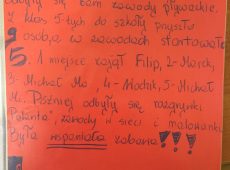 odbyły się tam zawody pływackie.
Z klas 5 tych do szkoły przyszło
9 osób a w zawodach startowało
5. 1 miejsce zajął Filip, 2-Marek,
3-Michał Mo, 4-Nadzik, 5-Michał
Później odbyły się rozgrywki
zawody w sieci i malowanki
Była wspaniała zabawa!!!